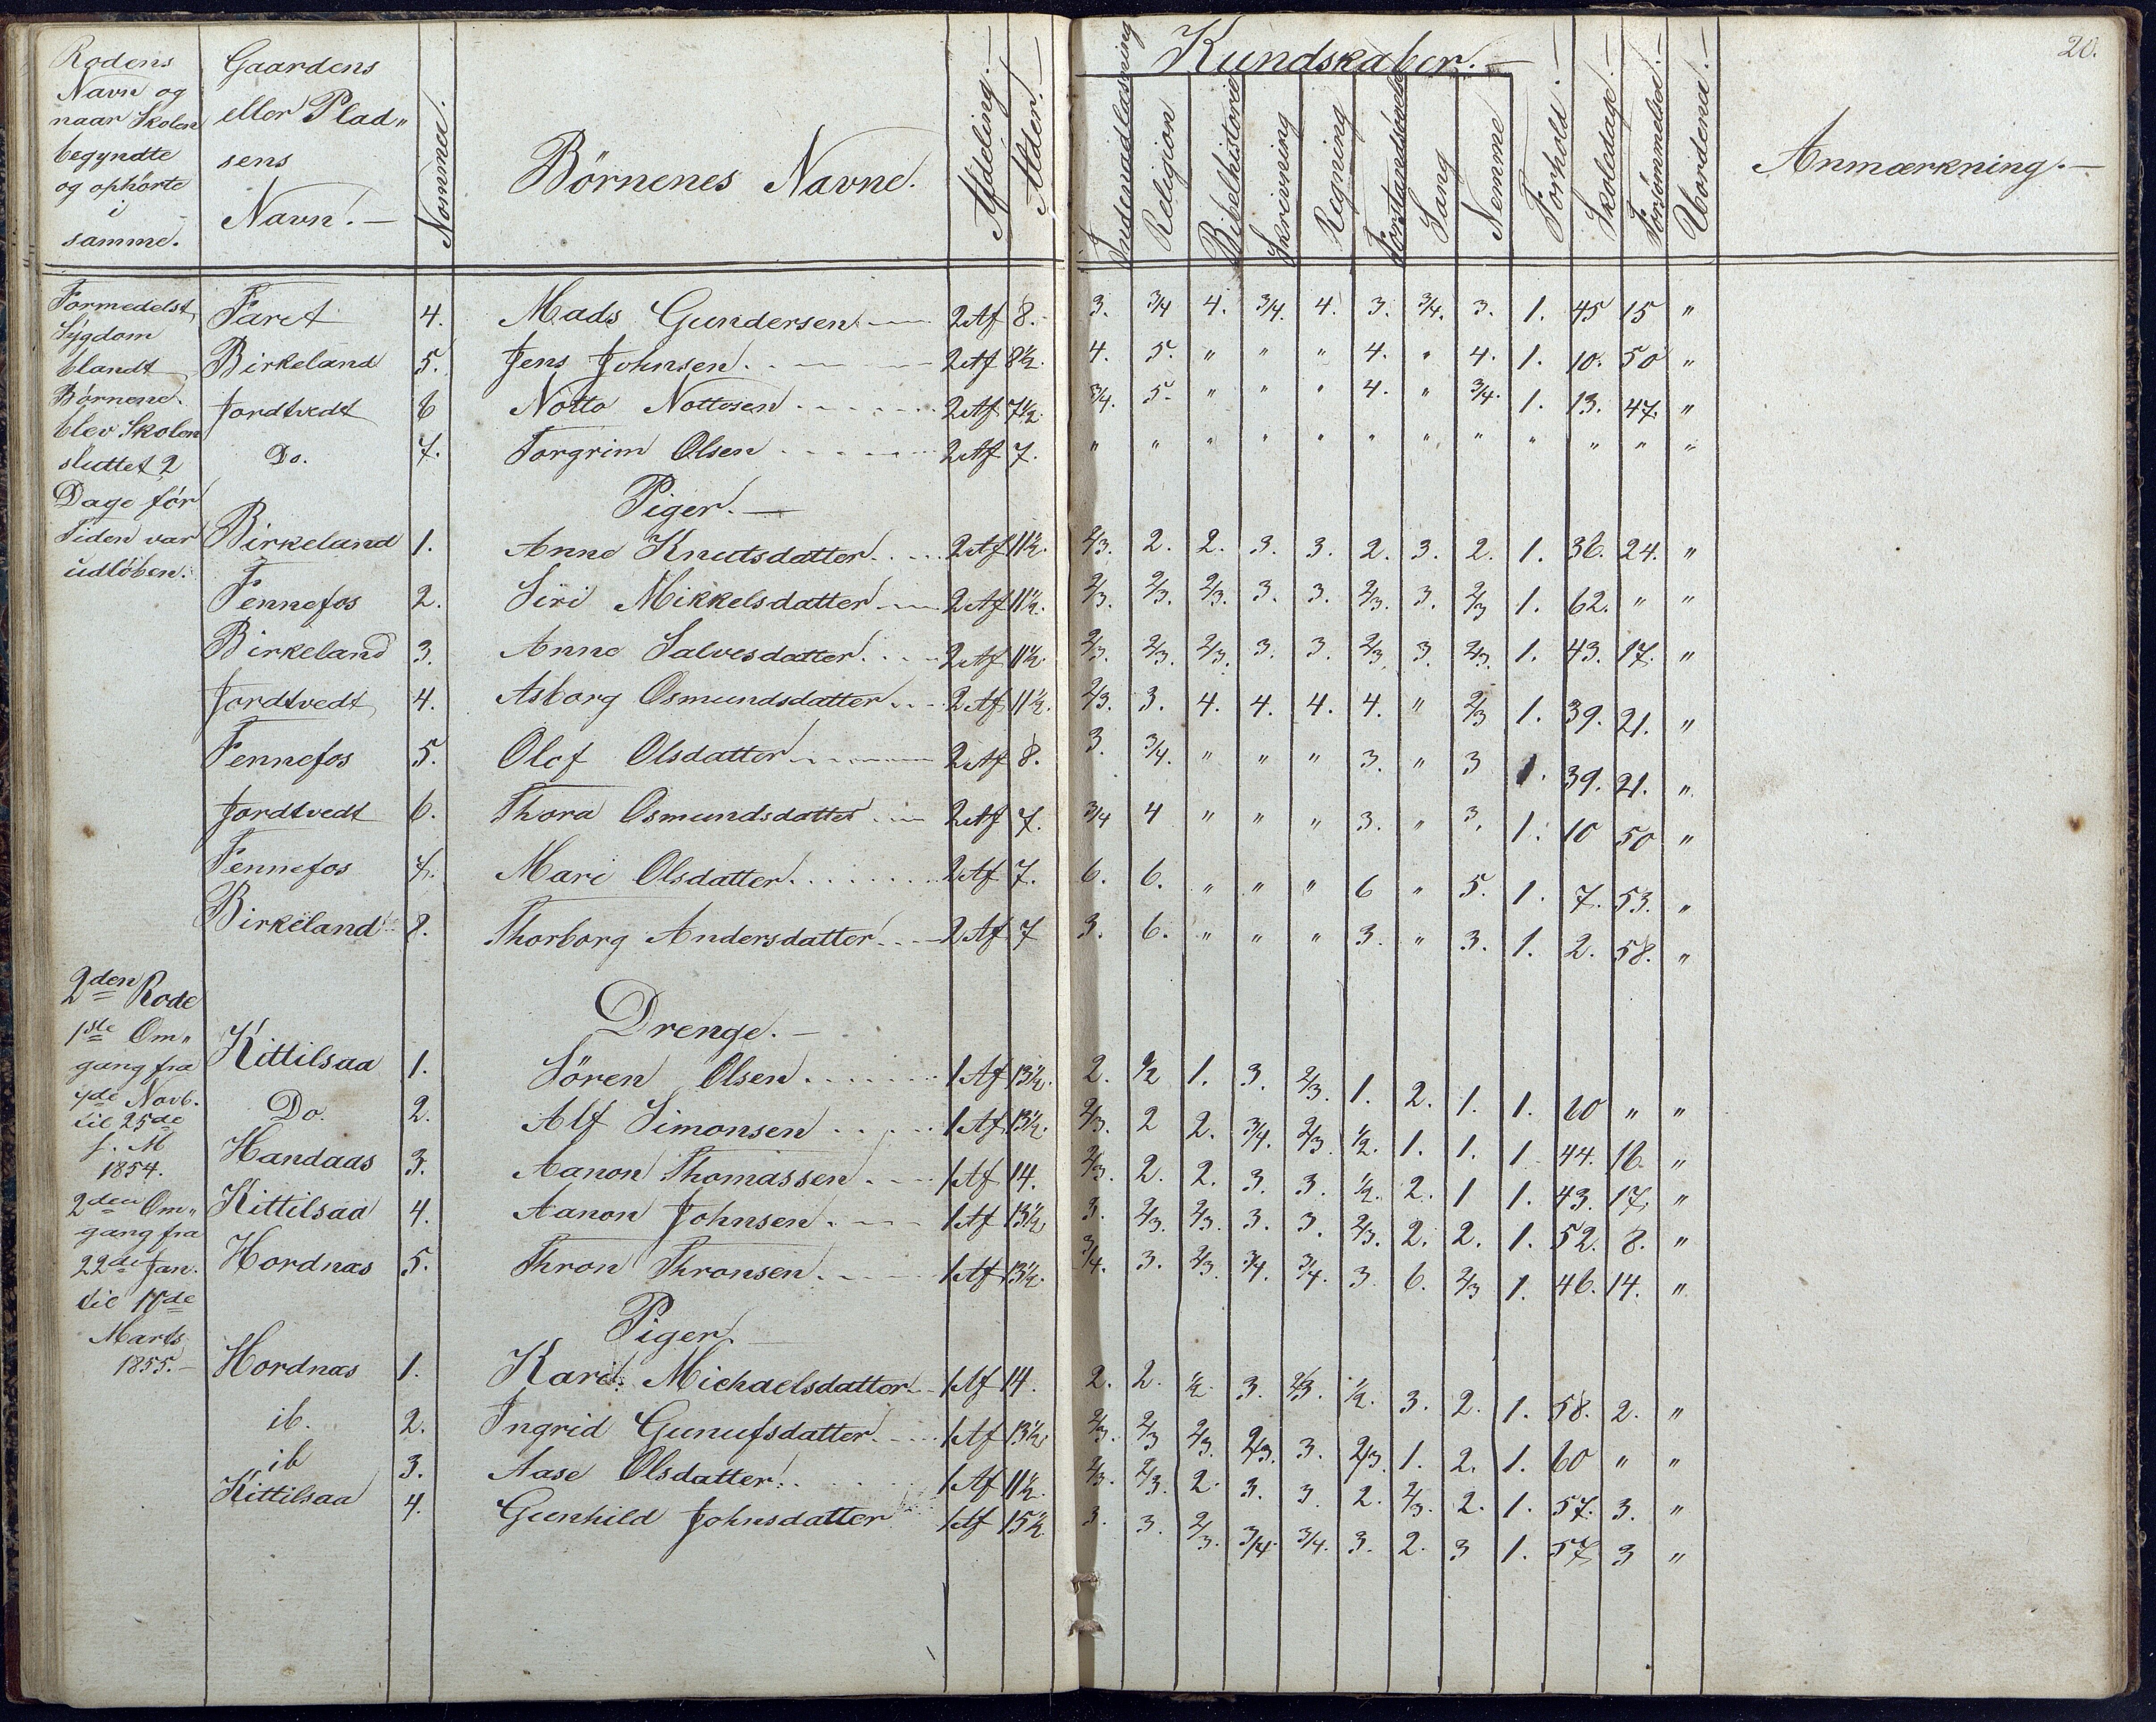 20.
Rodens Navn og naar Skolen begyndte og ophörte i samme. | Gaardens eller Plad„sens Navn. — | Nommer. | Börnenes Navne. | Afdeling. — | Alder. — | Kundskaber. — | Indenadlæsning | Religion | Bibelhistorie | Skrivning | Regning | Forstandsövelse | Sang | Nemme | Forhold. — | Skoledage. — | Forsömmelse. — | Uordend. — | Anmærkning. —
Formedelst
Sygdom
blandt
Börnene
blev Skolen
sluttet 2
Dage för
Tiden var
udlöben.
Faret 4. Mads Gundersen — 2 Af 8. 3. 3/4 4. 3/4. 4. 3. 3/4. 3. 1. 45 15 „
Birkeland 5. Jens Johnsen. 2 Af 8½. 4. 5. „ „ „ 4. „ 4. 1. 10. 50 „
Jordtvedt 6 Notto Nottosen 2 Af 7½. 3/4. 5. „ „ „ 4. „ 3/4. 1. 13. 47. „
Do. 7. Torgrim Olsen 2 Af 7. „ „ „ „ „ „ „ „ „ „ „ „
Piger. —
Birkeland 1. Anne Knutsdatter. 2 Af 11½. 2/3. 2. 2. 3. 3. 2. 3. 2. 1. 36. 24. „
Fennefos 2. Siri Mikkelsdatter 2 Af 11½. 2/3. 2/3. 2/3. 3. 3. 2/3. 3. 2/3 1. 62. „ „
Birkeland 3. Anne Salvesdatter. 2 Af 11½. 2/3. 2/3. 2/3. 3. 3. 2/3 3. 2/3. 1. 43. 17. „
Jordtvedt 4. Asborg Osmundsdatter. 2 Af 11½. 2/3. 3. 4. 4. 4. 4. „ 2/3 1. 39. 21. „
Fennefos 5. Olof Olsdatter 2 Af 8. 3. 3/4. „ „ „ 3. „ 3 1. 39. 21. „
Jordtvedt 6. Thora Osmundsdatter 2 Af 7. 3/4 4 „ „ „ 3. „ 3. 1. 10 50 „
Fennefos 7. Mari Olsdatter. 2 Af 7. 6. 6. „ „ „ 6 „ 5. 1. 7. 53. „
Birkeland 8. Thorborg Andersdatter. 2 Af 7 3. 6. „ „ „ 3. „ 3. 1. 2. 58. „
2den Rode
1ste Om„
gang fra
Novb.
til 25de
s. M
1854.
2den Om„
gang fra
22de Jan.
til 17de
Marts
1855. —
Drenge. —
Kittilsaa 1. Sören Olsen 1 Af 13½. 2. ½ 1. 3. 2/3. 1. 2. 1. 1. 60 „ „
Do. 2. Alf Simonsen 1 Af 13½. 2/3. 2 2. 3/4. 2/3. ½. 1. 1. 1. 44. 16. „
Handaas 3. Aanon Thomassen 1 Af 14. 2/3. 2. 2. 3. 3. ½. 2. 1 1. 43. 17. „
Kittilsaa 4. Aanon Johnsen. 1 Af 13½ 3. 2/3. 2/3. 3. 3. 2/3. 2. 2. 1. 52. 8. „
Hordnæs 5. Thron Thronsen. 1 Af 13½. 3/4. 3. 2/3. 3/4. 3/4. 3. 6. 2/3 1. 46. 14. „
Piger. —
Hordnæs 1. Kari Michaelsdatter 1 Af 14. 2. 2. ½. 3. 2/3. ½. 3. 2. 1. 58. 2. „
ib. 2. Ingrid Gunufsdatter. 1 Af 13½. 2/3. 2/3 2/3. 2/3. 3. 2/3. 1. 2. 1. 60 „ „
ib 3. Aase Olsdatter. 1 Af 11½. 2/3. 2/3. 2. 3. 3. 2. 2/3. 2. 1. 57. 3. „
Kittilsaa 4. Gunhild Johnsdatter 1 Af 15½. 3. 3. 2/3. 3/4. 3/4. 3. 2. 3 1. 57. 3 „